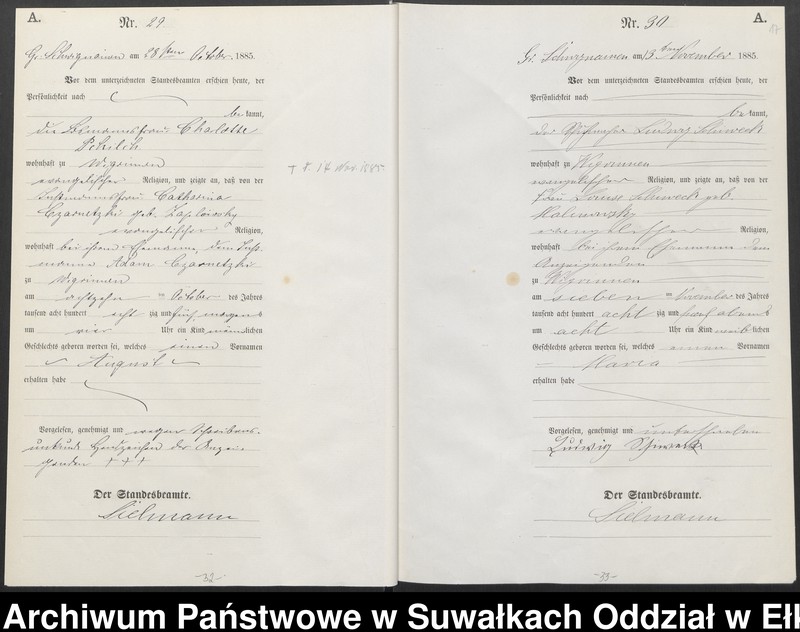 A.
Nr. 29
Gr. Schwignainen am 23ten October 1885.
Vor dem unterzeichneten Standesbeamten erschien heute, der
Persönlichkeit nach
bekannt,
die Losmannsfrau Charlotte
wohnhaft zu Wigrinnen
evangelischer Religion, und zeigte an, daß von der
Instmannsfrau Catharina
Czarnetzki geb.
evangelischer Religion,
wohnhaft bei ihrem Ehemanne, dem Inst-
manne Adam Czarnetzki
zu Wigrinnen
am achtzehn ten October des Jahres
tausend acht hundert achtzig und fünf morgens
um vier Uhr ein Kind männlichen
Geschlechts geboren worden sei, welches einen Vornamen
August
erhalten habe
Vorgelesen, genehmigt und wegen Schreibens-
unkunde Handzeichen der Anzei-
genden + + +
Der Standesbeamte.
Sielmann
-32-
† 14 Nov. 1885.
A.
Nr. 30
Gr. Schwignainen am 13ten November 1885.
Vor dem unterzeichneten Standesbeamten erschien heute, der
Persönlichkeit nach
bekannt,
der Ludwig
wohnhaft zu Wigrinnen
evangelischer Religion, und zeigte an, daß von der
Frau Louise geb.
Kalinowsky
evangelischer Religion,
wohnhaft bei ihrem Ehemanne dem
Anzeigenden
zu Wigrinnen
am sieben ten November des Jahres
tausend acht hundert achtzig und fünf abends
um acht Uhr ein Kind weiblichen
Geschlechts geboren worden sei, welches einen Vornamen
Maria
erhalten habe
Vorgelesen, genehmigt und unterschrieben
Ludwig
Der Standesbeamte.
Sielmann
-33-
Archiwum Państwowe w Suwałkach Oddział w Eł